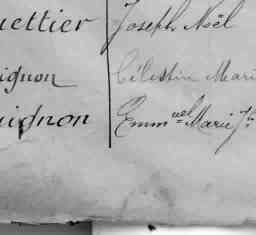 uettier Joseph Noël
ignon Célestin Mari
uignon Emm^uel Marie J^h